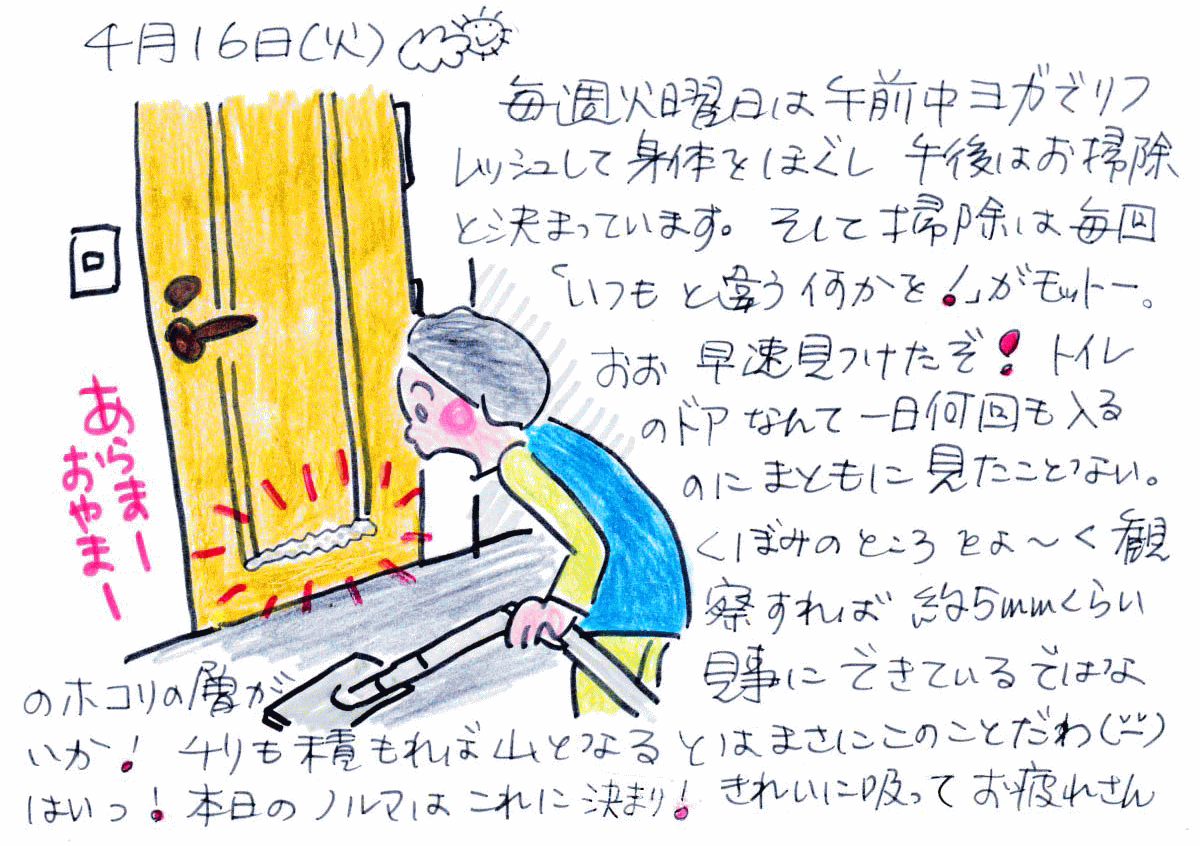 4月16日(火)
毎週火曜日は午前中ヨガでリフ
レッシュして身体をほぐし 午後はお掃除
と決まっています。そして掃除は毎回
「いつもと違う何かを!」がモットー。
おお 早速見つけたぞ! トイレ
のドアなんて一日何回も入る
のにまともに見たことない。
くぼみのところをよ〜く観
察すれば 約5mmくらい
見事にできているではな
のホコリの層が
いか! チリも積もれば山となるとはまさにこのことだわ(--)
はいっ! 本日のノルマはこれに決まり! きれいに吸ってお疲れさん
あらまー
おやまー